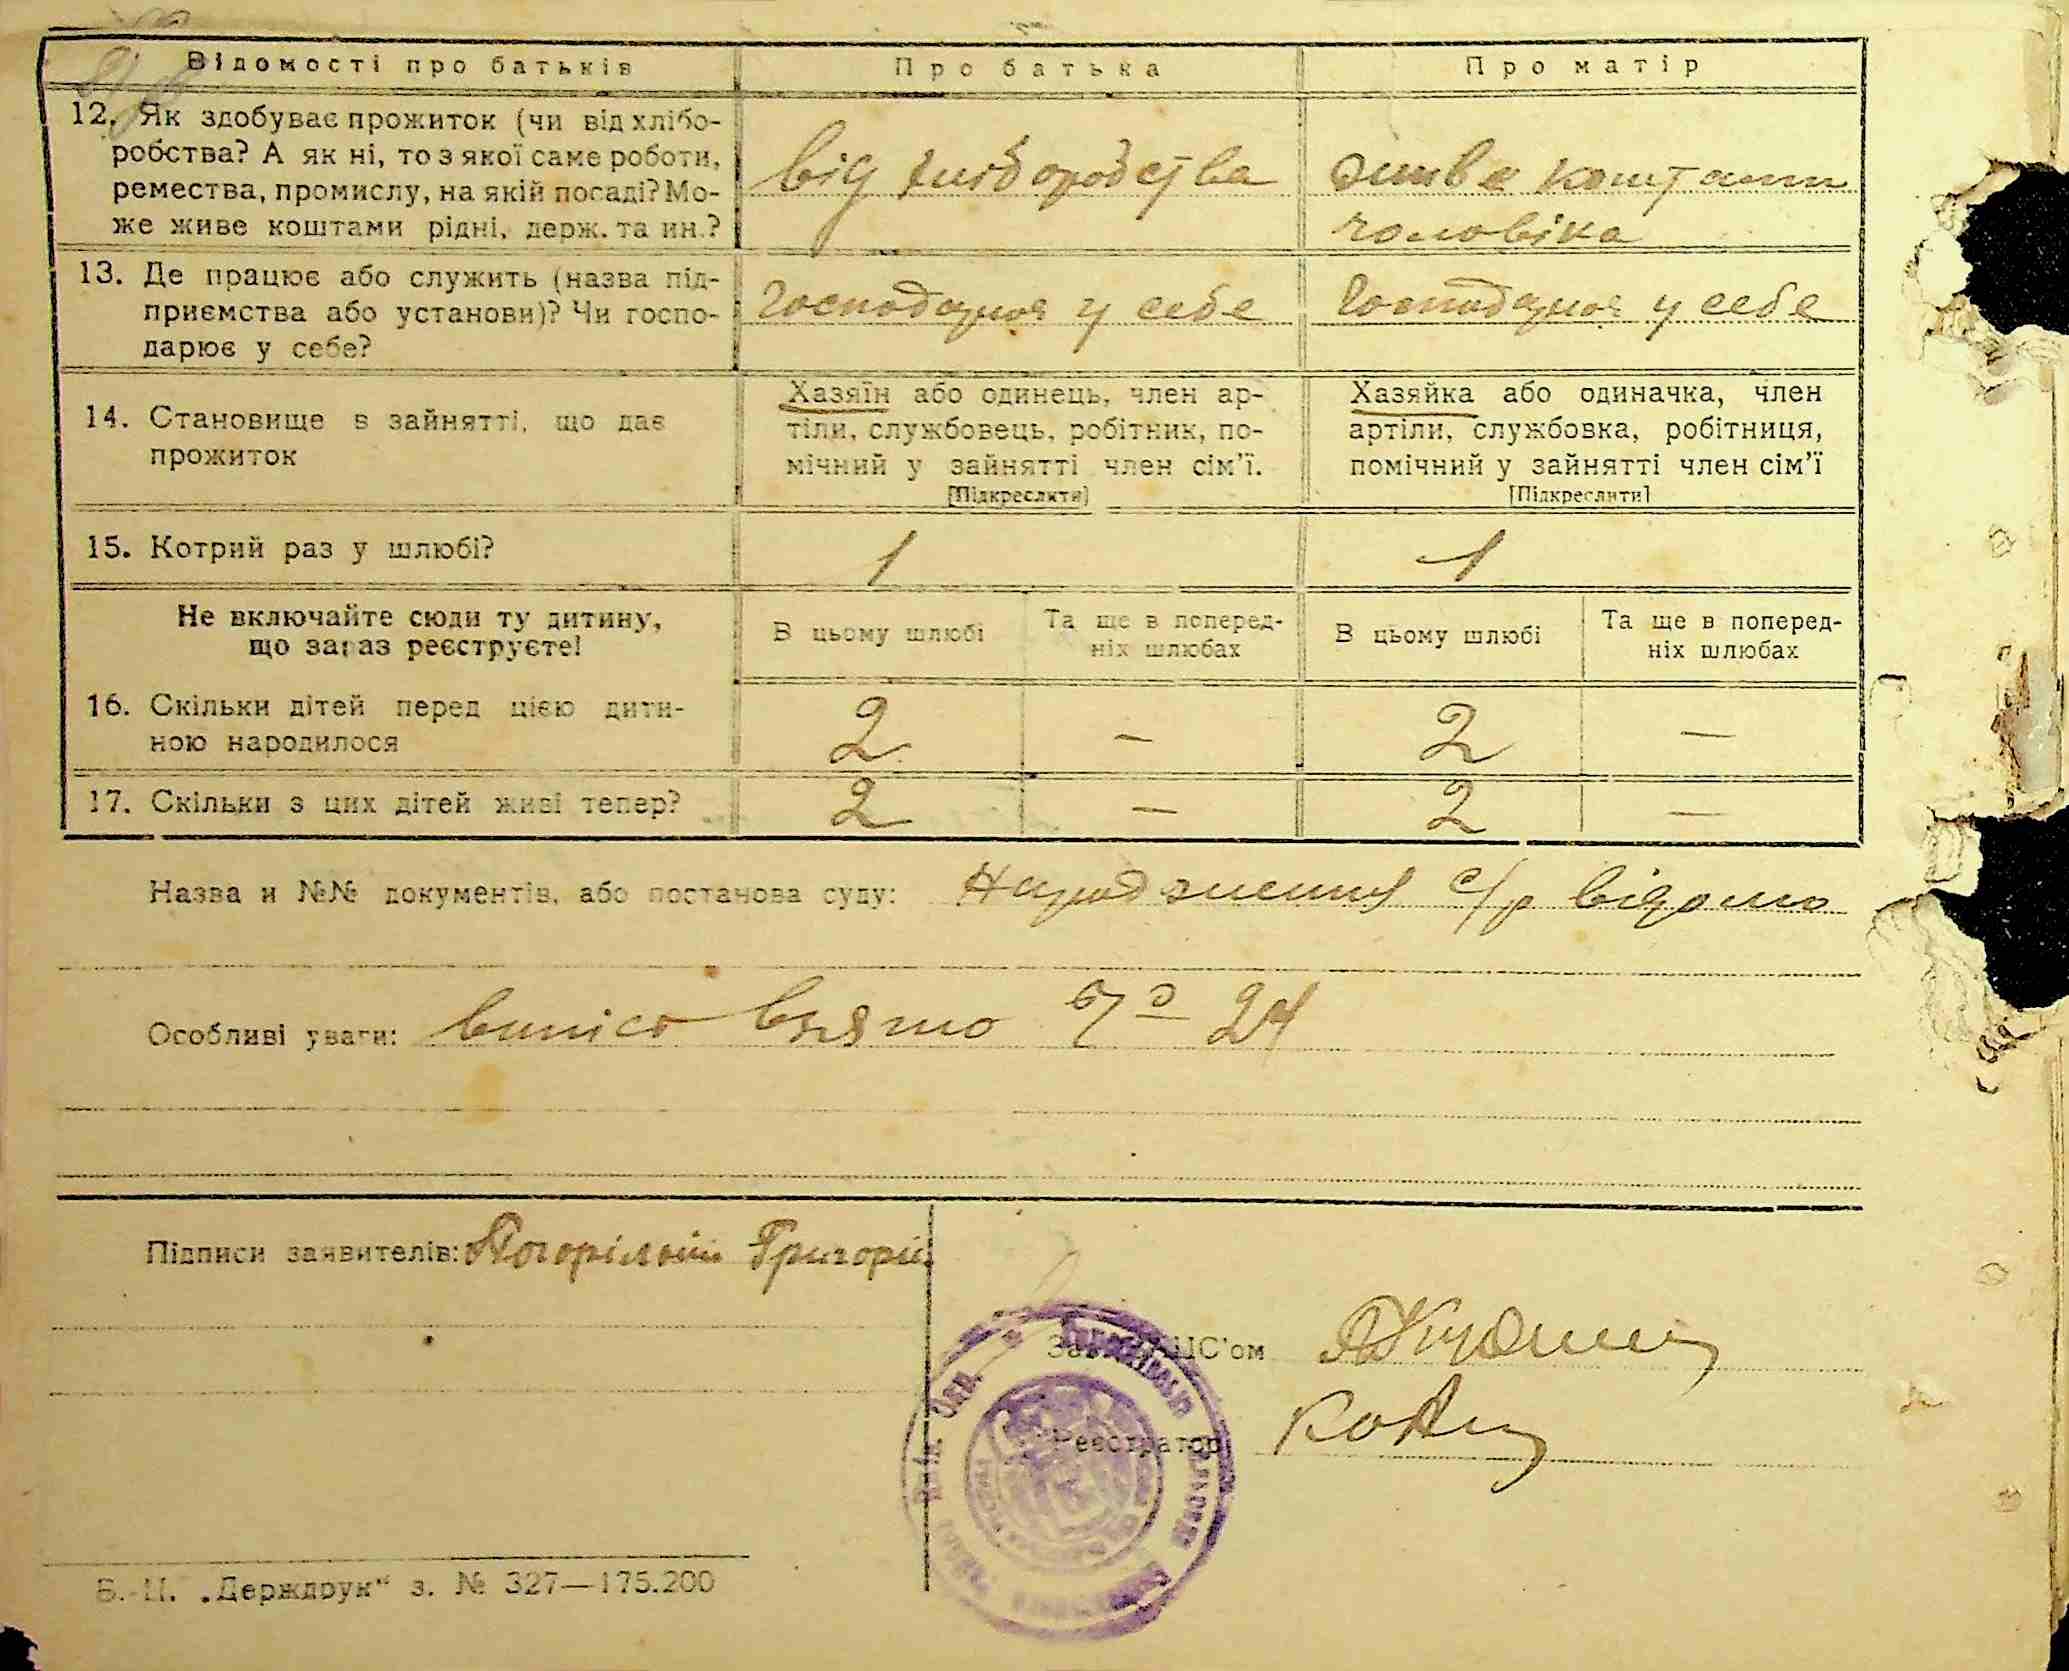 Відомості про батьків	Про батька	Про матір
12. Як здобуває прожиток (чи від хлібо-
робства? А як ні, то з якої саме роботи,
ремества, промислу, на якій посаді? Мо-
же живе коштами рідні, держ. та ин.?
від хліборобства
живе коштами
чоловіка
13. Де працює або служить (назва під-
приємства або установи)? Чи госпо-
дарює у себе?
Господарює у себе
Господарює у себе
14. Становище в зайнятті, що дає
прожиток
Хазяїн або одинець, член ар-
тіли, службовець, робітник, по-
мічний у зайнятті член сім’ї.
[Підкреслити]
Хазяйка або одиначка, член
артіли, службовка, робітниця,
помічний у зайнятті член сім’ї
[Підкреслити]
15. Котрий раз у шлюбі?	1	1
Не включайте сюди ту дитину,
що зараз реєструєте!
В цьому шлюбі
Та ще в поперед-
ніх шлюбах
В цьому шлюбі
Та ще в поперед-
ніх шлюбах
16. Скільки дітей перед цією дити-
ною народилося
2	—	2	—
17. Скільки з цих дітей живі тепер?	2	—	2	—
Назва и №№ документів, або постанова суду: Народження с/р відомо
Особливі уваги: випіс взято 24
Підписи заявителів: Погорілий Григорій
ЗАЦС’ом
Реєстратор
Б.-Ц. „Держдрук“ з. № 327—175.200